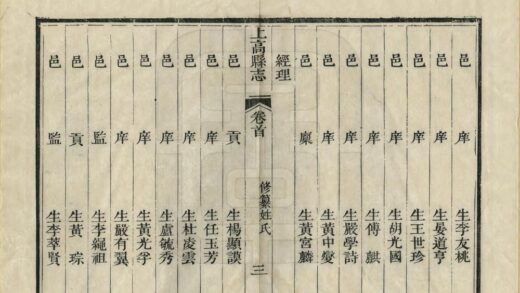 邑庠生李友桃
邑庠生晏道亨
邑庠生王世珍
邑庠生胡光國
邑庠生傅麒
邑庠生嚴學詩
邑庠生黃中燮
邑廩生黃宮麟
經理
上高縣志
卷首
修纂姓氏
三
邑貢生楊顯謨
邑庠生任玉芳
邑庠生杜凌雲
邑庠生盧毓秀
邑庠生黃光孚
邑庠生嚴有翼
邑監生李繩祖
邑貢生黃琮
邑監生李萃賢